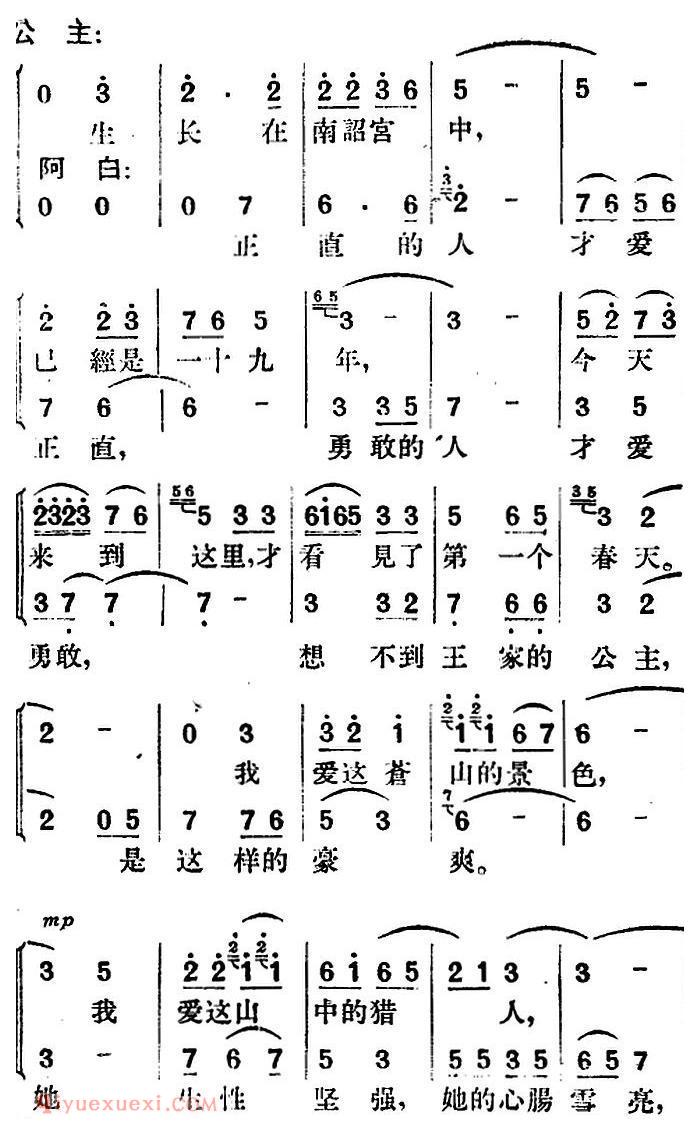 公 主：
0 3 | 2 · 2 | 2 2 3 6 | 5 - | 5 -
生 长 在 南 詔 宮 中，
阿 白：
0 0 | 0 7 | 6 · 6 | 3 2 - | 7 6 5 6
正 直 的 人 才 爱
2 2 3 | 7 6 5 | 6 5 3 - | 3 - | 5 2 7 3
已 經 是 一 十 九 年， 今 天
7 6 | 6 - | 3 3 5 | 7 - | 3 5
正 直， 勇 敢 的 人 才 爱
2 3 2 3 7 6 | 5 6 5 3 3 | 6 1 6 5 3 3 | 5 6 5 | 3 5 3 2
来 到 这 里，才 看 見 了 第 一 个 春 天。
3 7 7 | 7 - | 3 3 2 | 7 6 6 | 3 2
勇 敢， 想 不 到 王 家 的 公 主，
2 - | 0 3 | 3 2 1 | 2 1 2 1 6 7 | 6 -
我 爱 这 蒼 山 的 景 色，
2 0 5 | 7 7 6 | 5 3 | 7 6 - | 6 -
是 这 样 的 豪 爽。
mp
3 5 | 2 2 2 1 2 1 | 6 1 6 5 | 2 1 3 | 3 -
我 爱 这 山 中 的 猎 人，
3 - | 7 6 7 | 5 3 | 5 5 3 5 | 6 5 7
她 生 性 坚 强， 她 的 心 腸 雪 亮，
iyuexuexi.com